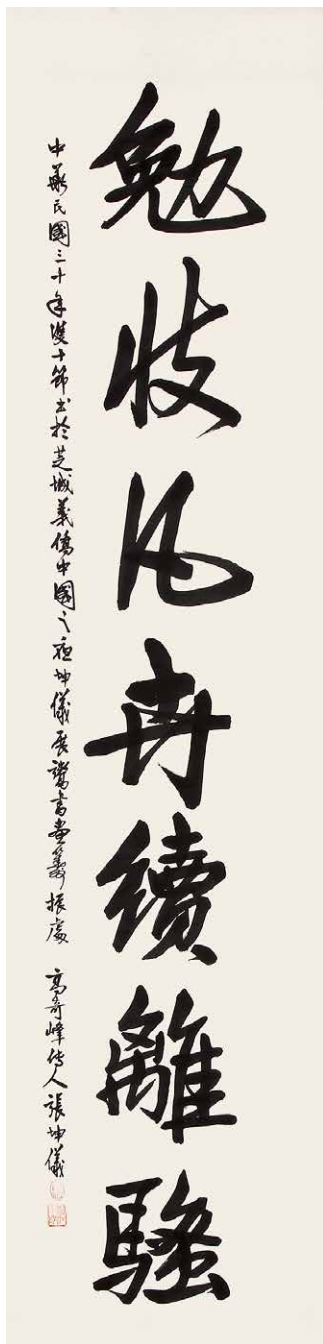 勉續離騷
中華民國三十年雙十節書於芝城義僑中國之夜坤儀展鬻書畫籌振處　高奇峰傳人張坤儀